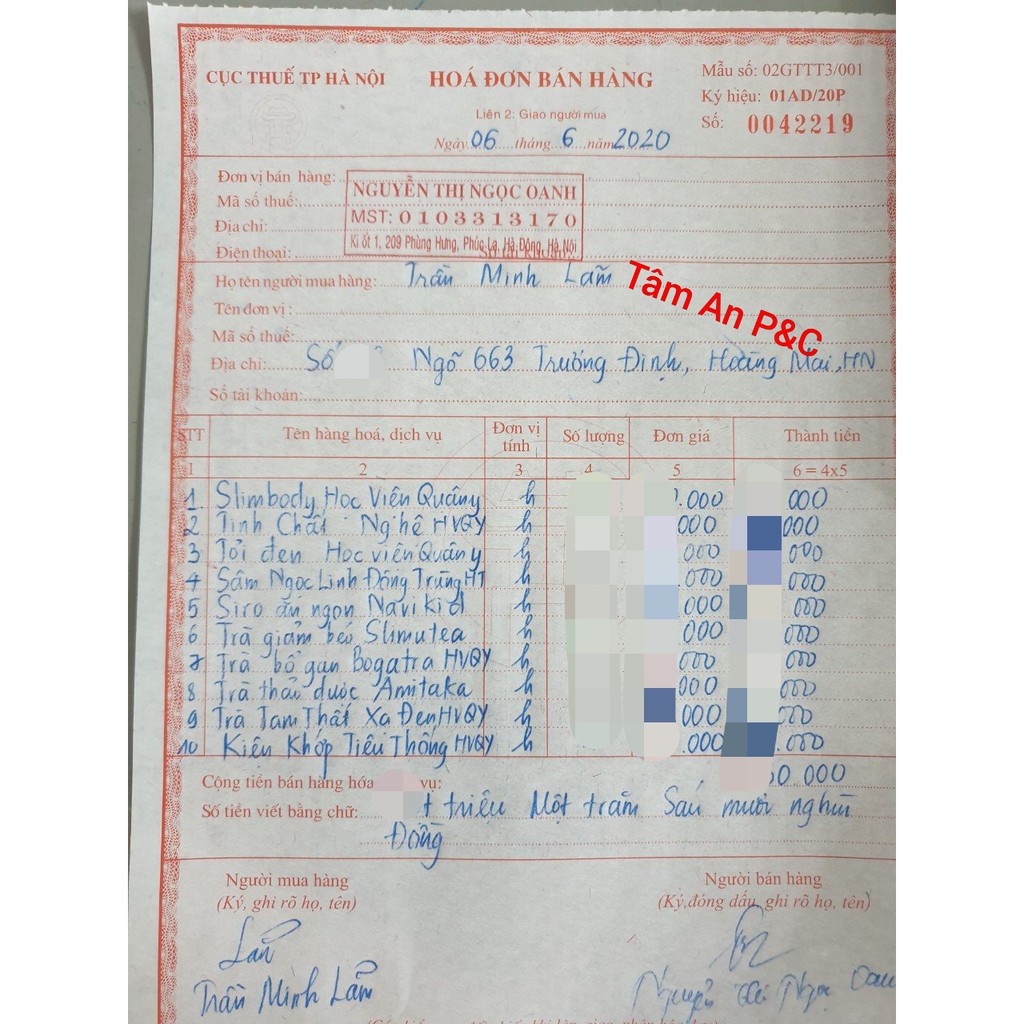 CỤC THUẾ TP HÀ NỘI
HOÁ ĐƠN BÁN HÀNG
Mẫu số: 02GTTT3/001
Liên 2: Giao người mua
Ký hiệu: 01AD/20P
Ngày 06 tháng 6 năm 2020
Số: 0042219
Đơn vị bán hàng:
NGUYỄN THỊ NGỌC OANH
Mã số thuế:
MST: 0103313170
Địa chỉ:
Ki ốt 1, 209 Phùng Hưng, Phúc La, Hà Đông, Hà Nội
Điện thoại:
Họ tên người mua hàng: Trần Minh Lãm
Tâm An P&C
Tên đơn vị:
Mã số thuế:
Địa chỉ: Số Ngõ 663 Trương Định, Hoàng Mai, HN
Số tài khoản:
STT Tên hàng hoá, dịch vụ Đơn vị tính Số lượng Đơn giá Thành tiền
1 2 3 4 5 6 = 4x5
1. Slimbody Học Viện Quân y h .000 000
2 Tinh Chất Nghệ HVQY h 000 000
3 Tỏi đen Học viện Quân y h 000 000
4 Sâm Ngọc Linh Đông Trùng HT h .000 000
5 Siro ăn ngon Navikid h 000 000
6 Trà giảm béo Slimutea h 000 000
7 Trà bổ gan Bogatra HVQY h 000 000
8 Trà thảo dược Amitaka h 000 .000
9 Trà Tam Thất Xạ Đen HVQY h 000 000
10 Kiện Khớp Tiêu Thống HVQY h .000 .000
Cộng tiền bán hàng hóa vụ: 0.000
Số tiền viết bằng chữ: t triệu Một trăm Sáu mươi nghìn
Đồng
Người mua hàng
Người bán hàng
(Ký, ghi rõ họ, tên)
(Ký,đóng dấu, ghi rõ họ, tên)
Lãm
Trần Minh Lãm
Nguyễn Thị Ngọc Oanh